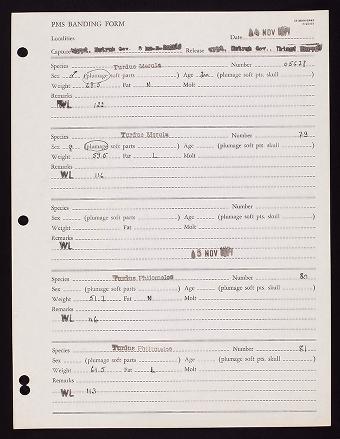 PMS BANDING FORM
Localities Date 14 NOV
Capture Egypt, Matruh Gov. Release Egypt, Matruh Gov.
Species Turdus Merula Number 05678
Sex ♂ (plumage soft parts ) Age (plumage soft pts. skull )
Weight Fat N Molt
Remarks
WL 122
Species Turdus Merula Number 79
Sex ♀ (plumage soft parts ) Age (plumage soft pts. skull )
Weight 59.5 Fat L Molt
Remarks
WL 116
Species Number
Sex (plumage soft parts ) Age (plumage soft pts. skull )
Weight Fat Molt
Remarks
WL
15 NOV
Species Turdus Philomelos Number 80
Sex (plumage soft parts ) Age (plumage soft pts. skull )
Weight 51.1 Fat N Molt
Remarks
WL 116
Species Turdus Philomelos Number 81
Sex (plumage soft parts ) Age (plumage soft pts. skull )
Weight 61.5 Fat L Molt
Remarks
WL 113